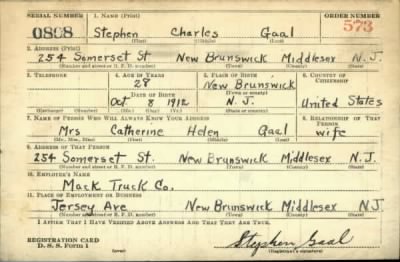 SERIAL NUMBER 1. NAME (Print) ORDER NUMBER
0808 Stephen Charles Gaal 573
(First) (Middle) (Last)
2. ADDRESS (Print)
254 Somerset St New Brunswick Middlesex N.J.
(Number and street or R. F. D. number) (Town) (County) (State)
3. TELEPHONE 4. AGE IN YEARS 5. PLACE OF BIRTH 6. COUNTRY OF CITIZENSHIP
28 New Brunswick
DATE OF BIRTH (Town or county)
Oct 8 1912 N.J. United States
(Exchange) (Number) (Mo.) (Day) (Yr.) (State or country)
7. NAME OF PERSON WHO WILL ALWAYS KNOW YOUR ADDRESS 8. RELATIONSHIP OF THAT PERSON
Mrs Catherine Helen Gaal wife
(Mr., Mrs., Miss) (First) (Middle) (Last)
9. ADDRESS OF THAT PERSON
254 Somerset St. New Brunswick Middlesex N.J.
(Number and street or R. F. D. number) (Town) (County) (State)
10. EMPLOYER'S NAME
Mack Truck Co.
11. PLACE OF EMPLOYMENT OR BUSINESS
Jersey Ave New Brunswick Middlesex N.J.
(Number and street or R. F. D. number) (Town) (County) (State)
I AFFIRM THAT I HAVE VERIFIED ABOVE ANSWERS AND THAT THEY ARE TRUE.
REGISTRATION CARD
D. S. S. Form 1 Stephen Gaal
(over) (Registrant's signature)